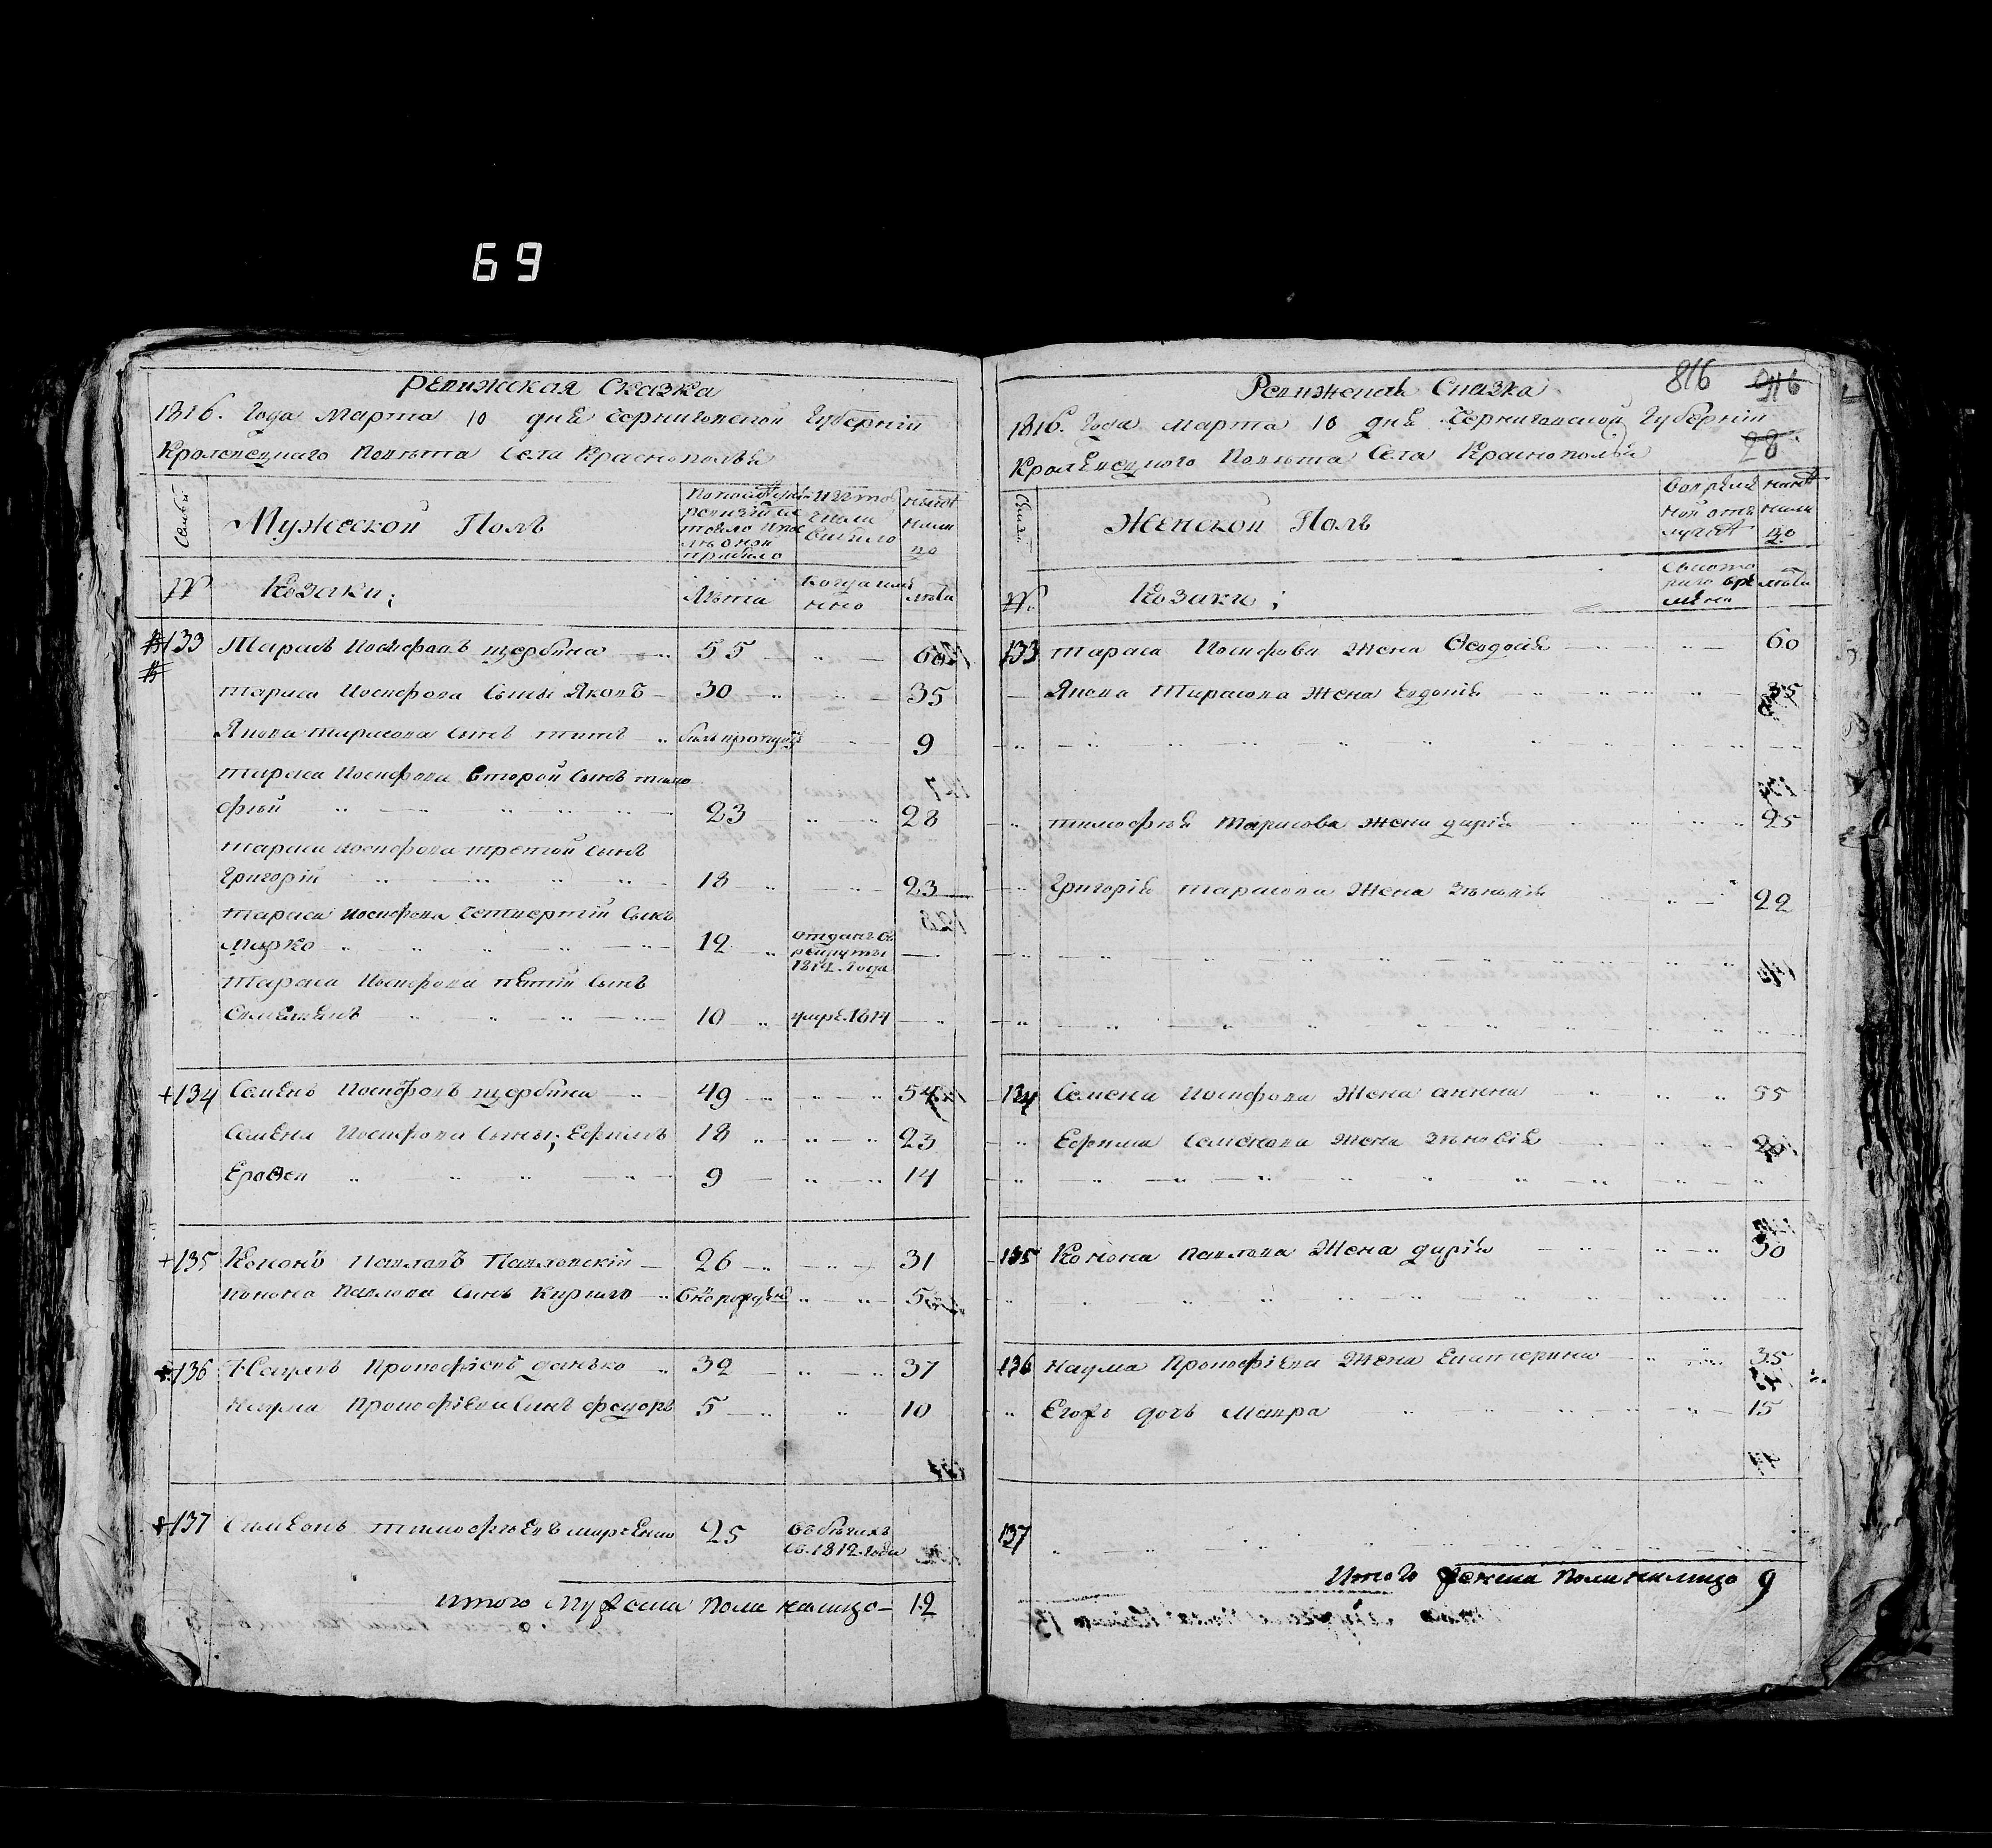 69
Ревижская Сказка
1816. Года Марта 10 дня Черниговской Губернии
Кролевецкаго Повѣта Села Краснополья
Семьи
Мужеской Полъ
по последней ревизіи состояло и после оной прибыло
изъ того числа выбыло
ныне на лицо
№
Козаки;
Лѣта
когда именно
лѣта
133 Тарасъ Иосифовъ щербина 55 60
тараса Иосифова Сыны Яковъ 30 35
Якова тарасова Сынъ титъ 9
тараса Иосифова второй Сынъ тимо
фѣй 23 28
тараса иосифова третой Сынъ
Григорій 18 23
тараса иосифова Четвертій Сынъ
Марко 12 отданъ въ рекруты 1812 Года
тараса Иосифова пятій Сынъ
10 умре 1814
134 Семенъ Иосифовъ щербина 49 54
Семена Иосифова Сыны; Ефимъ 18 23
Ерофеи 9 14
135 Кононъ Павловъ Павловскій 26 31
конона Павлова Сынъ Кирило 5
136 Наумъ Прокофіевъ данько 32 37
Наума Прокофіева Сынъ федоръ 5 10
137 Симеонъ тимофѣевъ марченко 25 въ бѣгахъ съ 1812 Года
итого Мужеска Пола налицо 12
816 916
Ревижская Сказка
1816. Года марта 10 дня Черниговской Губерніи
28
Кролевецкого Повѣта Села Краснополья
Семьи
Женской Полъ
Во временной отлучке
ныне на лицо
№
Козаки;
съ котораго времени
лѣта
133 тараса Иосифова жена Феодосія 60
Якова Тарасова жена Евдокія 35
тимофѣя Тарасова жена дарія 25
Григорія тарасова жена 22
134 Семена Иосифова жена анна 55
Ефима Семенова жена зѣновія
135 Конона павлова жена дарія 30
136 наума Прокофіева жена Екатерина 35
Егожъ дочь 15
137
Итого женска Пола налицо 9